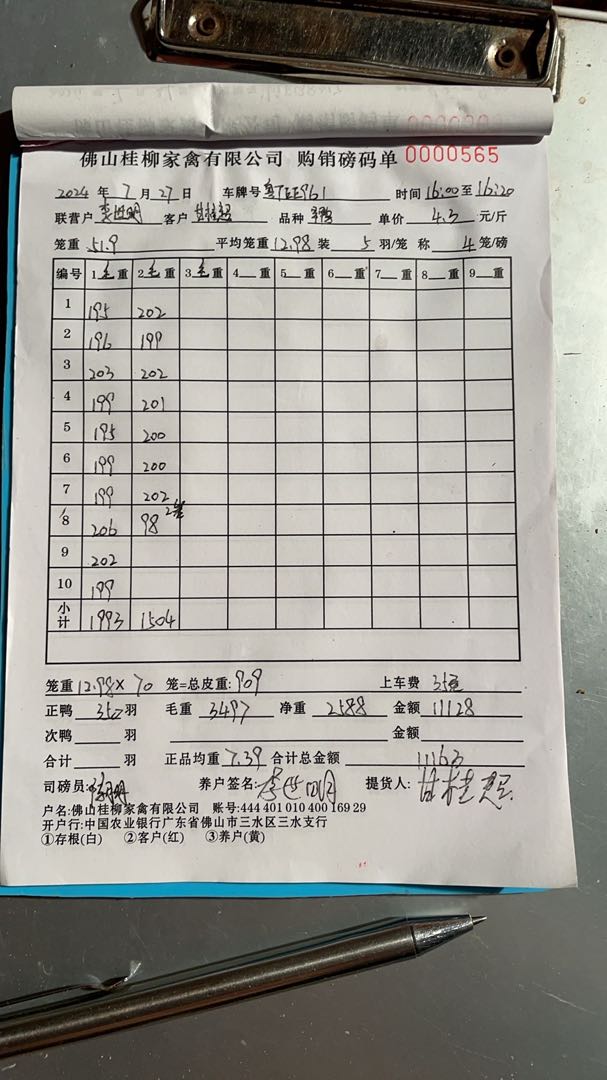 佛山桂柳家禽有限公司 购销磅码单 0000565
2024 年 7 月 27 日 车牌号 时间 16:00 至 16:20
联营户 李世明 客户 甘桂超 品种 单价 4.3 元/斤
笼重 51.9 平均笼重 12.98 装 5 羽/笼 称 4 笼/磅
编号 1 毛 重 2 毛 重 3 毛 重 4 重 5 重 6 重 7 重 8 重 9 重
1 195 202
2 196 199
3 203 202
4 199 201
5 195 200
6 199 200
7 199 202
8 206 98 2笼
9 202
10 199
小计 1993 1504
笼重 12.98 × 70 笼=总皮重: 909 上车费 35元
正鸭 350 羽 毛重 3497 净重 2588 金额 11128
次鸭 羽 金额
合计 羽 正品均重 7.39 合计总金额 11163
司磅员: 养户签名: 李世明 提货人: 甘桂超
户名:佛山桂柳家禽有限公司 账号:444 401 010 400 169 29
开户行:中国农业银行广东省佛山市三水区三水支行
①存根(白) ②客户(红) ③养户(黄)